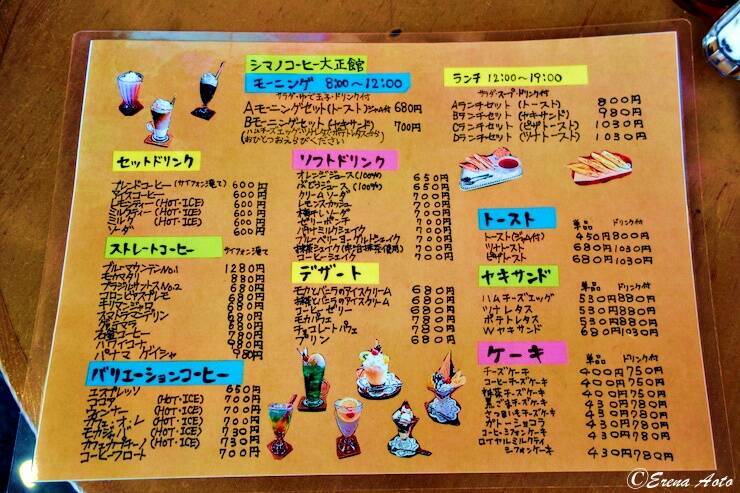 シマノコーヒー大正館
モーニング 8:00〜12:00
サラダ・ゆで玉子・ドリンク付
Aモーニングセット(トースト)ジャム付 680円
Bモーニングセット(ヤキサンド) 700円
(ハムチーズエッグ・ツナレタス・ポテトレタスから)
おひとつおえらびください
ランチ 12:00〜19:00
サラダ・スープ・ドリンク付
Aランチセット(トースト) 800円
Bランチセット(ヤキサンド) 980円
Cランチセット(ピザトースト) 1030円
Dランチセット(ツナトースト) 1030円
セットドリンク
ブレンドコーヒー(サイフォン滝て) 600円
アイスコーヒー 600円
レモンティー(HOT・ICE) 600円
ミルクティー(HOT・ICE) 600円
ミルク(HOT・ICE) 600円
ソーダ 600円
ストレートコーヒー サイフォン滝て
ブルーマウンテンNo.1 1280円
モカマタリ 830円
ブラジルサントスNo.2 680円
コロンビアスプレモ 680円
キリマンジャロ 680円
スマトラマンデリン 680円
グァテマラ 680円
ハワイコナ
パナマ ゲイシャ 980円
バリエーションコーヒー
エスプレッソ 650円
ココア (HOT・ICE) 700円
ウィンナー (HOT・ICE) 700円
カフェ・オ・レ (HOT・ICE) 700円
モカジャバ (HOT・ICE) 700円
カプチーノ (HOT・ICE) 700円
コーヒーフロート 700円
ソフトドリンク
オレンジジュース(100%) 650円
ぶどうジュース(100%) 650円
クリームソーダ 700円
レモンスカッシュ 700円
梅ソーダ 700円
ゼリーポンチ 700円
バナナミルクシェイク 700円
ブルーベリーヨーグルトシェイク 700円
抹茶シェイク 700円
コーヒーシェイク 700円
デザート
モカとバニラのアイスクリーム 680円
抹茶とバニラのアイスクリーム 680円
コーヒーゼリー 680円
モカパフェ 780円
チョコレートパフェ 780円
プリン 680円
トースト 単品 ドリンク付
トースト(ジャム付) 450円 800円
ツナトースト 680円 1030円
ピザトースト 680円 1030円
ヤキサンド 単品 ドリンク付
ハムチーズエッグ 530円 880円
ツナレタス 530円 880円
ポテトレタス 530円 880円
Wヤキサンド 680円 1030円
ケーキ 単品 ドリンク付
チーズケーキ 400円 750円
コーヒーチーズケーキ 400円 750円
抹茶チーズケーキ 400円 750円
黒ごまチーズケーキ 400円 750円
さつまいもチーズケーキ 400円 750円
ガトーショコラ 430円 780円
コーヒーシフォンケーキ 430円 780円
ロイヤルミルクティ
シーフォンケーキ 430円 780円
©Erena Aoto